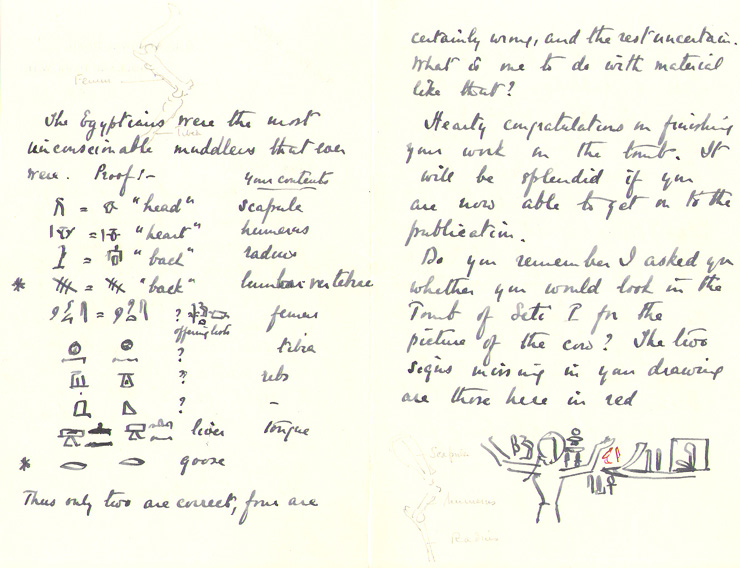 Femur
The Egyptians were the most
tibia
unconscionable muddlers that ever
were. Proof :-
your contents
= "head" scapula
= "heart" humerus
= "back" radius
* = "back" lumbar vertebrae
= ? offering lists femur
? tibia
? ribs
? -
liver tongue
* goose
Thus only two are correct, four are
certainly wrong, and the rest uncertain.
What is one to do with material
like that?
Hearty congratulations on finishing
your work in the tomb. It
will be splendid if you
are now able to get on to the
publication.
Do you remember I asked you
whether you would look in the
Tomb of Seti I for the
picture of the cow? The two
signs missing in your drawing
are those here in red
Scapula
humerus
Radius